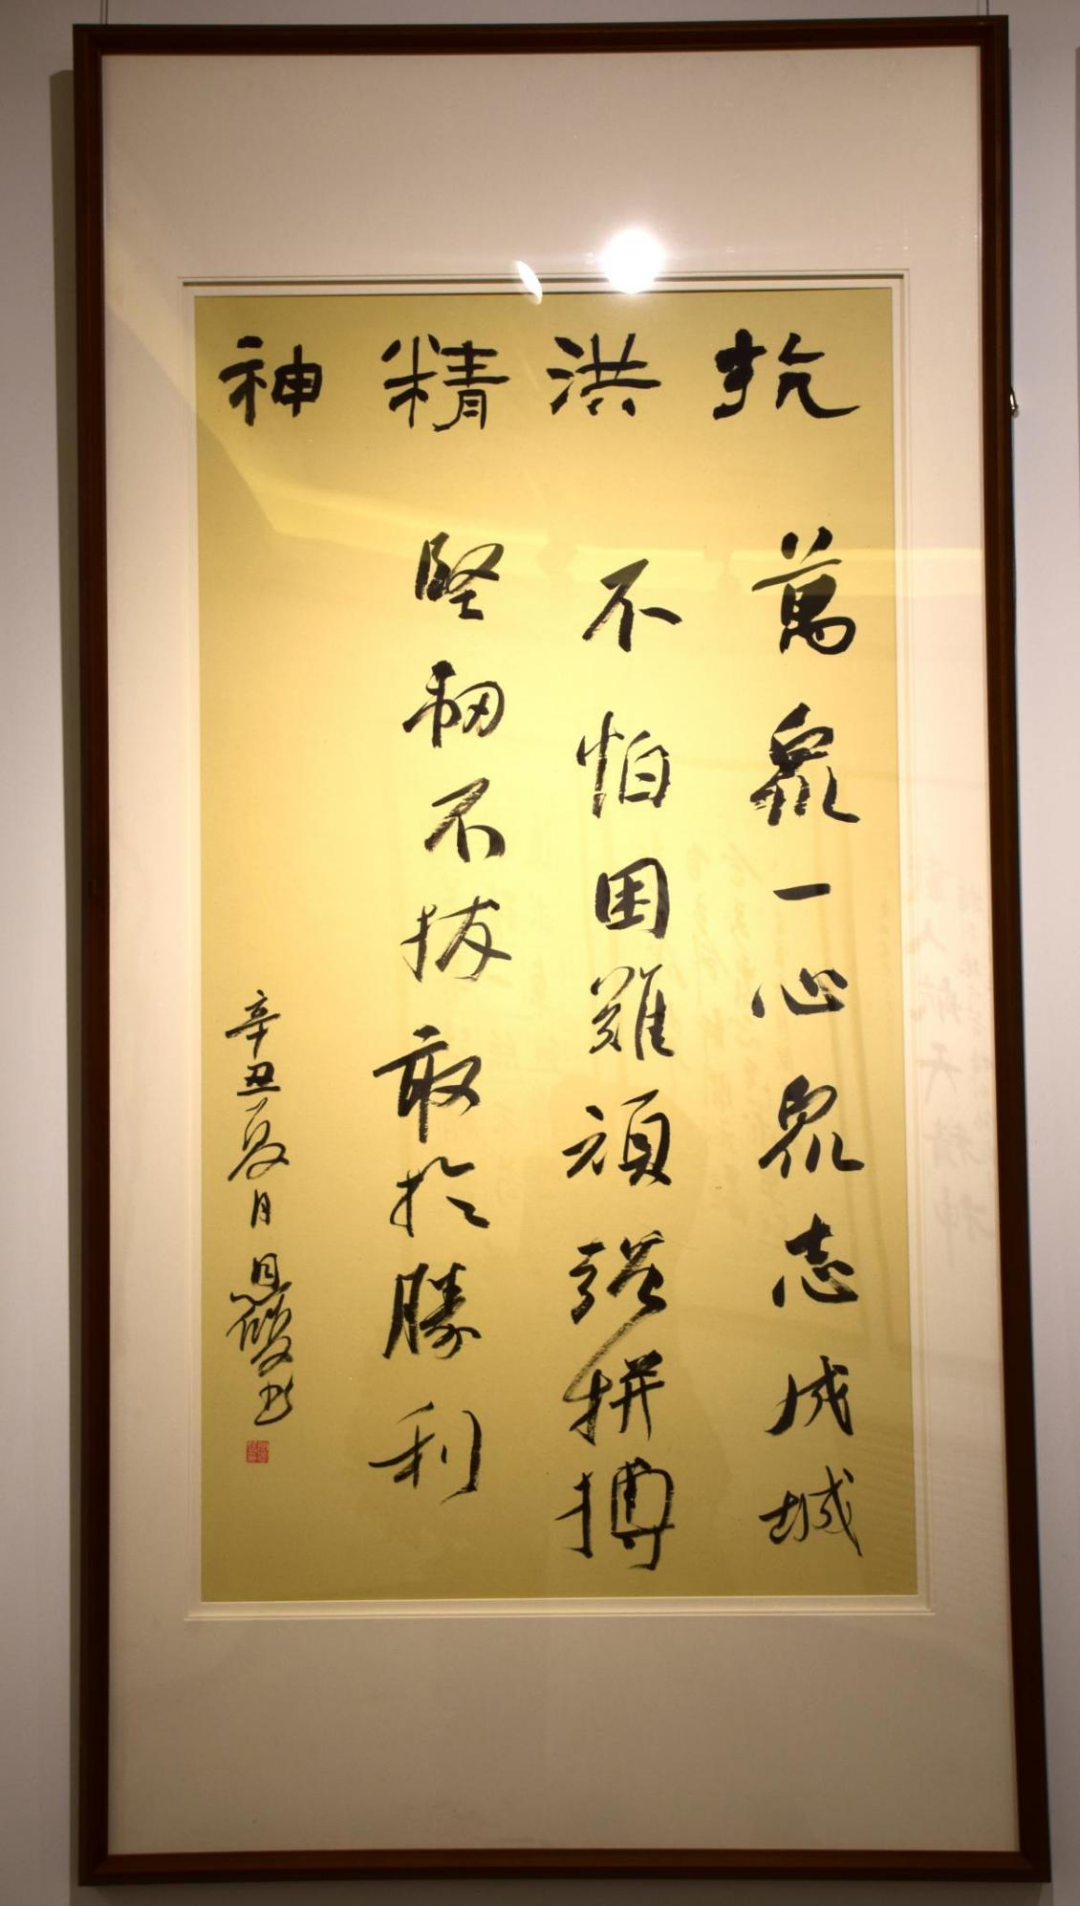 抗洪精神
萬眾一心眾志成城
不怕困難頑強拼搏
堅韌不拔敢於勝利
辛丑夏月